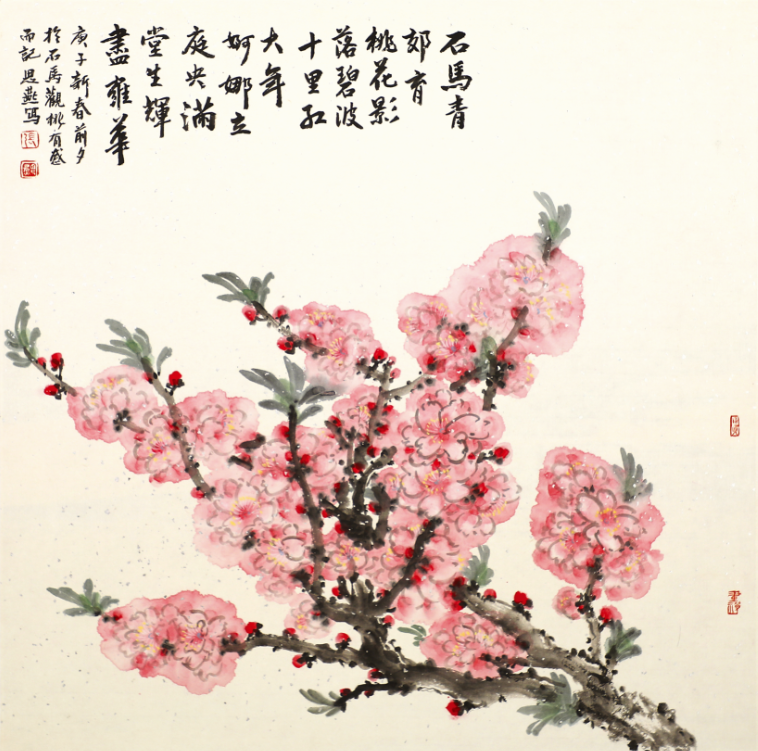 石馬青
郊育
桃花影
落碧波
十里紅
大年
婀娜立
庭央滿
堂生輝
盡雍華
庚子新春前夕
於石馬觀桃有感
而記思燕寫